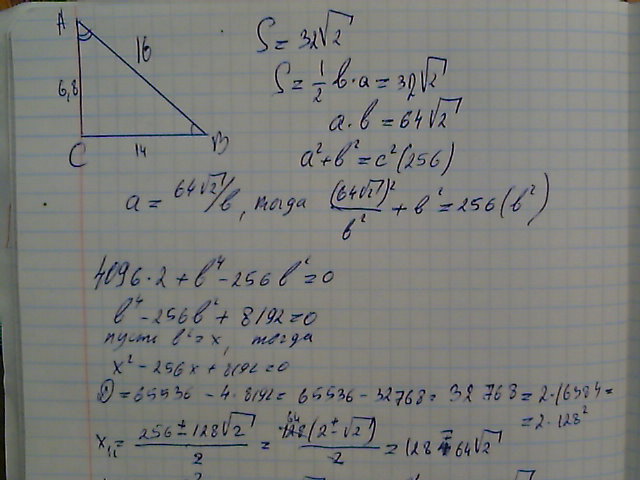 A
16
6,8
C
14
B
S = 32√2
S = 1/2 b·a = 32√2
a·b = 64√2
a² + b² = c² (256)
a = 64√2/b, тогда (64√2)²/b² + b² = 256 (b²)
4096·2 + b⁴ - 256b² = 0
b⁴ - 256b² + 8192 = 0
пусть b² = x, тогда
x² - 256x + 8192 = 0
D = 65536 - 4·8192 = 65536 - 32768 = 32768 = 2·16384 =
= 2·128²
x₁,₂ = (256 ± 128√2)/2 = 64(2 ± √2)/2 = 128 ∓ 64√2